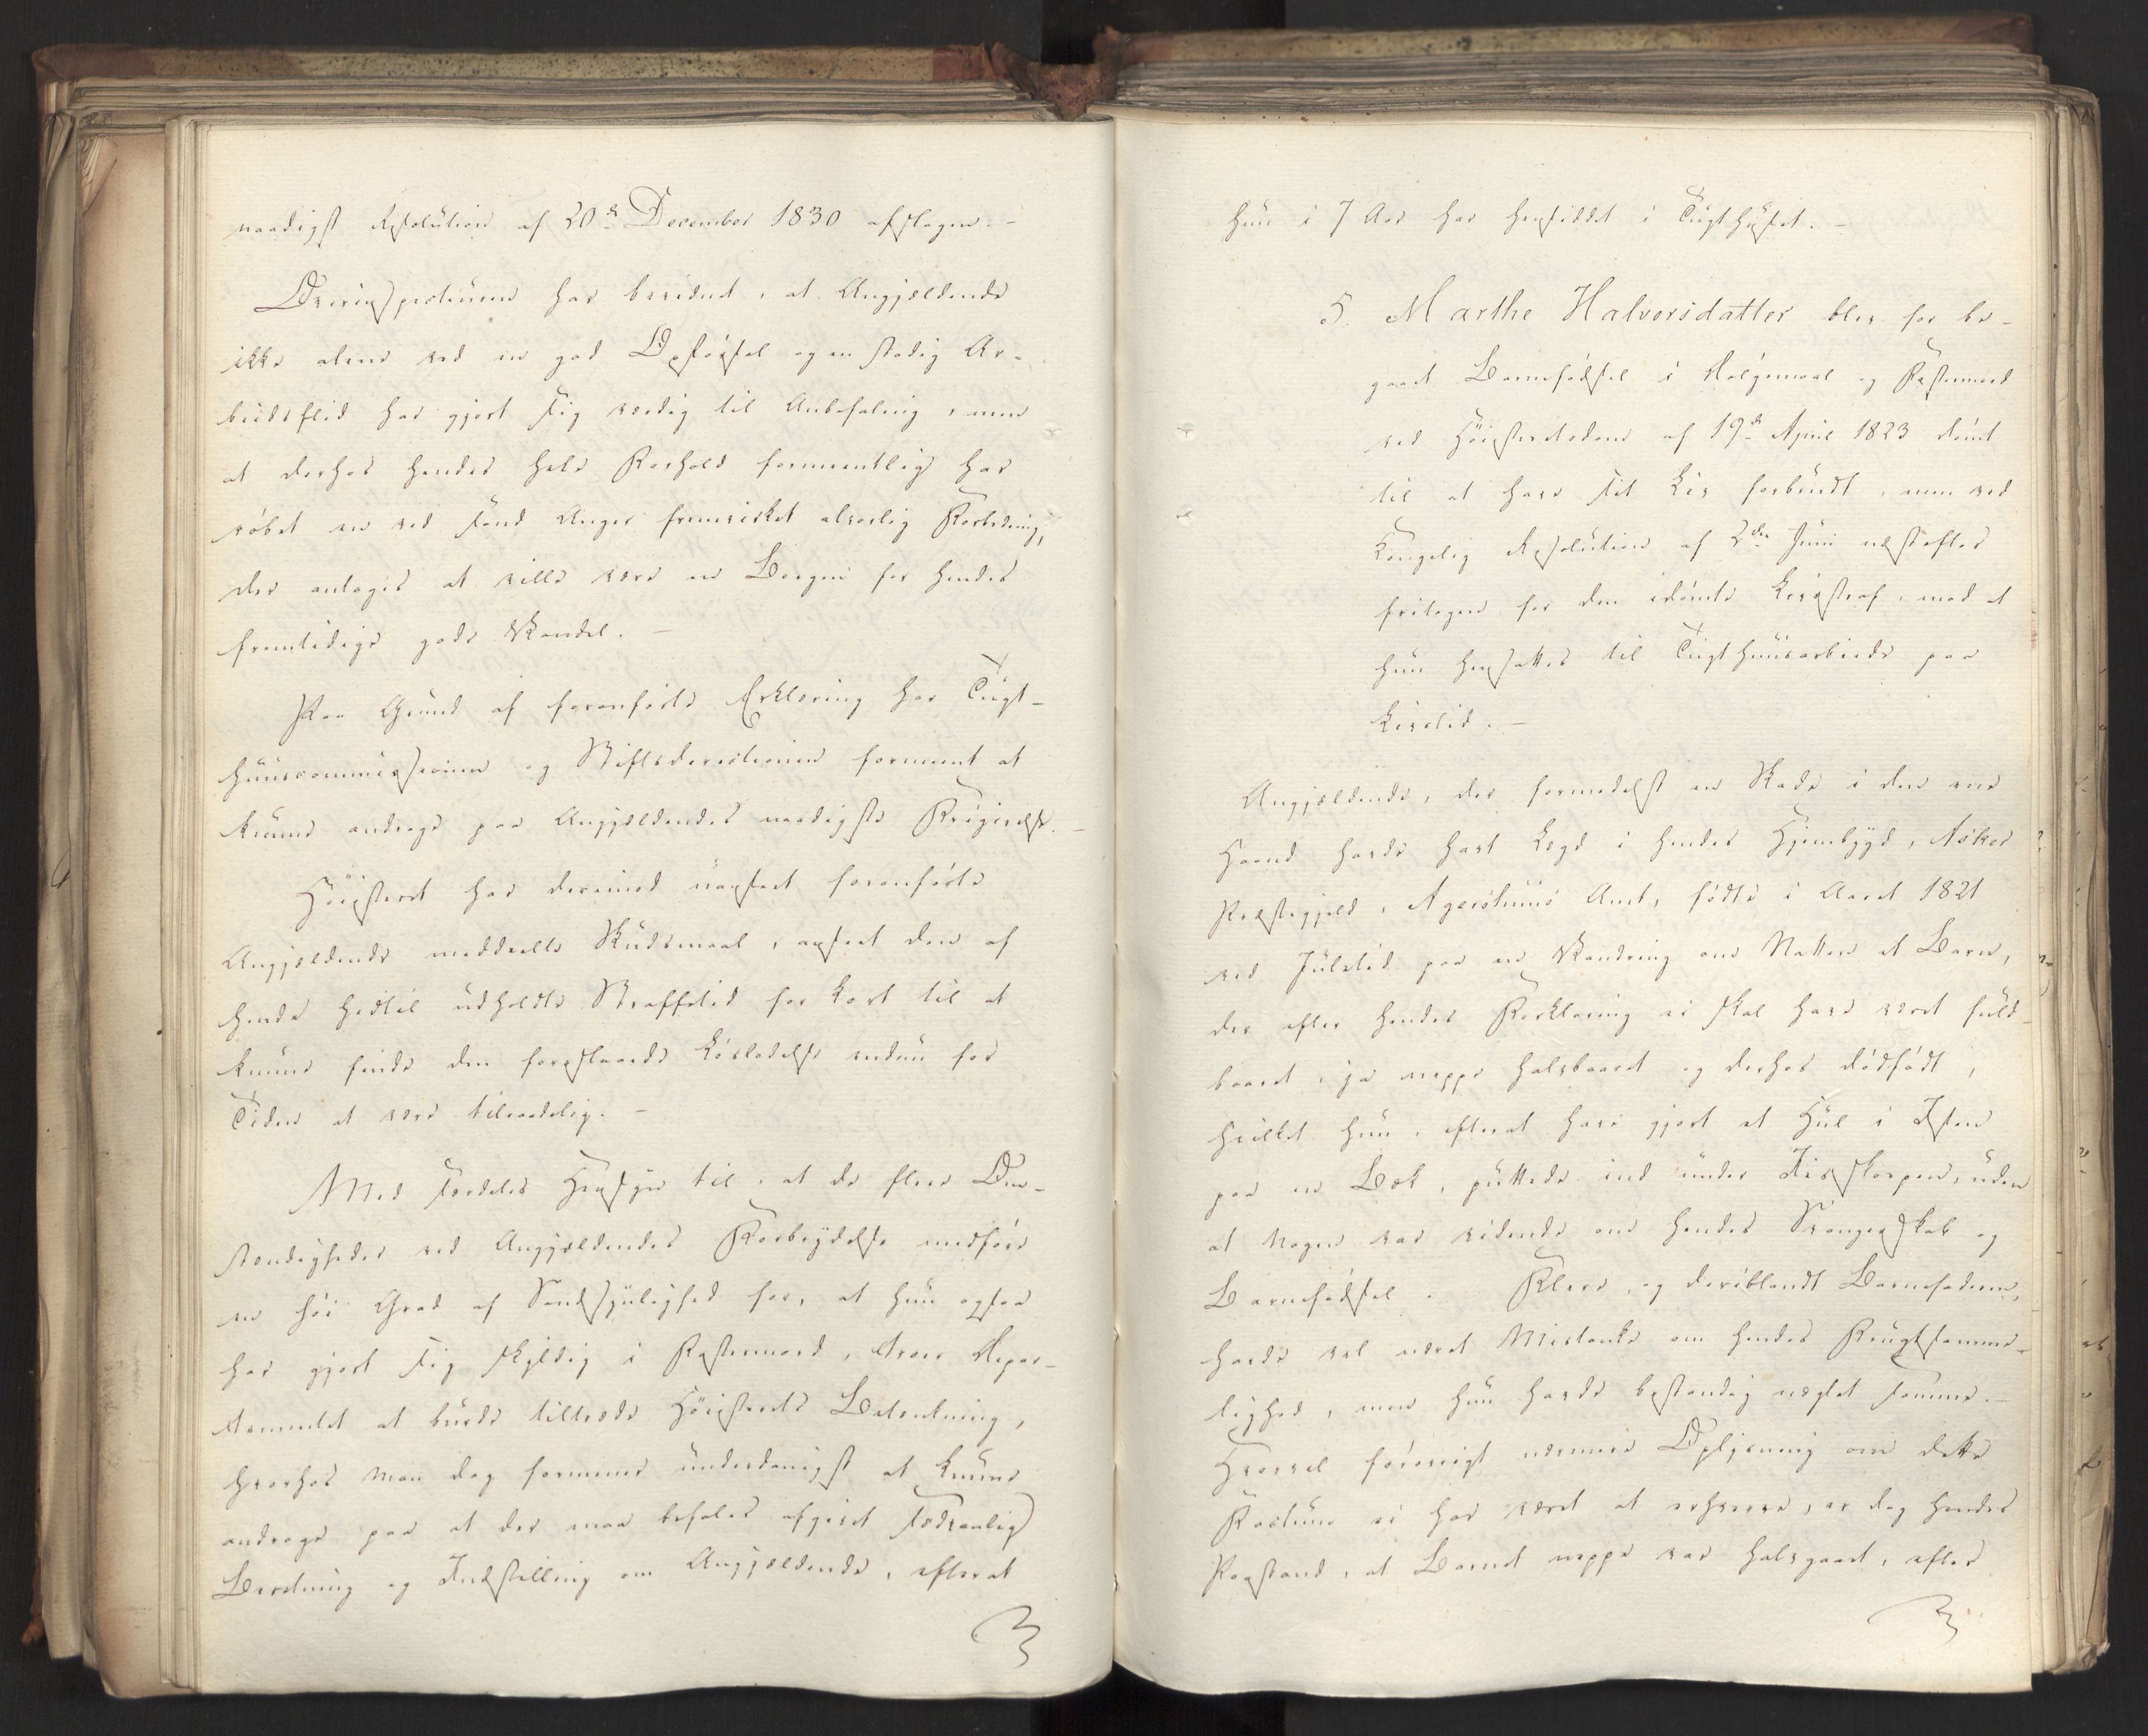 naadigst Resolution af 20de December 1830 afslagen. –
Økonoms
har bevidnet, at Angjældende
ikke alene ved en god Opførsel og en stadig Ar-
beidsflid har gjort sig værdig til Anbefaling, men
at derhos hendes hele Forhold formeentlig har
røbet en ved sand Anger fremvirket alvorlig Forbedring,
der antages at ville være en Borgen for hendes
fremtidige gode Vandel. –
Paa Grund af foranførte Erklæring har Tugt-
huuscommissionen og Stiftsdirectionen formeent at
kunne andrage paa Angjældendes naadigste Frigivelse. –
Høiesteret har derimod uanseet foranførte
Angjældende meddeelte Skudsmaal, anseet den af
hende hidtil udholdte Straffetid for kort til at
kunne finde den foreslaaede Løsladelse endnu for
Tiden at være tilraadelig. –
Med særdeles Hensyn til, at de flere Om-
stændigheder ved Angjældendes Forbrydelse medføre
en høi Grad af Sandsynlighed for, at hun ogsaa
har gjort sig skyldig i Fostermord, troer Depar-
tementet at burde tiltræde Høiesterets Betænkning,
hvorhos man dog formener underdanigst at kunne
andrage paa at der maa befales afgivet sædvanlig
Beretning og Indstilling om Angjældende, efterat
hun i 7 Aar har hensiddet i Tugthuset. –
5. Marthe Halvorsdatter blev for be-
gaaet Barnefødsel i Dølgsmaal og Fostermord
ved Høiesteretsdom af 19de April 1823 dømt
til at have sit Liv forbrudt, men ved
Kongelig Resolution af 2den Juni næstefter
fritagen for den idømte Livsstraf, mod at
hun hensattes til Tugthuusarbeide paa
Livstid. –
Angjældende, der formedelst en Skade i den ene
Haand havde havt Lægd i hendes Hjembygd, Asker
Præstegjeld, Agershuus Amt, fødte i Aaret 1821
ved Juletid paa en Vandring om Natten et Barn,
der efter hendes Forklaring ei skal have været fuld-
baaret, ja neppe halvbaaret og derhos dødfødt,
hvilket hun, efterat have gjort et Hul i Isen
paa en Bæk, puttede ind under Iisskorpen, uden
at Nogen var vidende om hendes Svangerskab og
Barnefødsel. Flere, og deriblandt Barnefaderen,
havde vel næret Mistanke om hendes Frugtsomme-
lighed, men hun havde bestandig negtet samme. –
Hvorvel forøvrigt nærmere Oplysning om dette
Factum ei har været at erhverve, er dog hendes
Paastand, at Barnet neppe var halvgaaet, efter